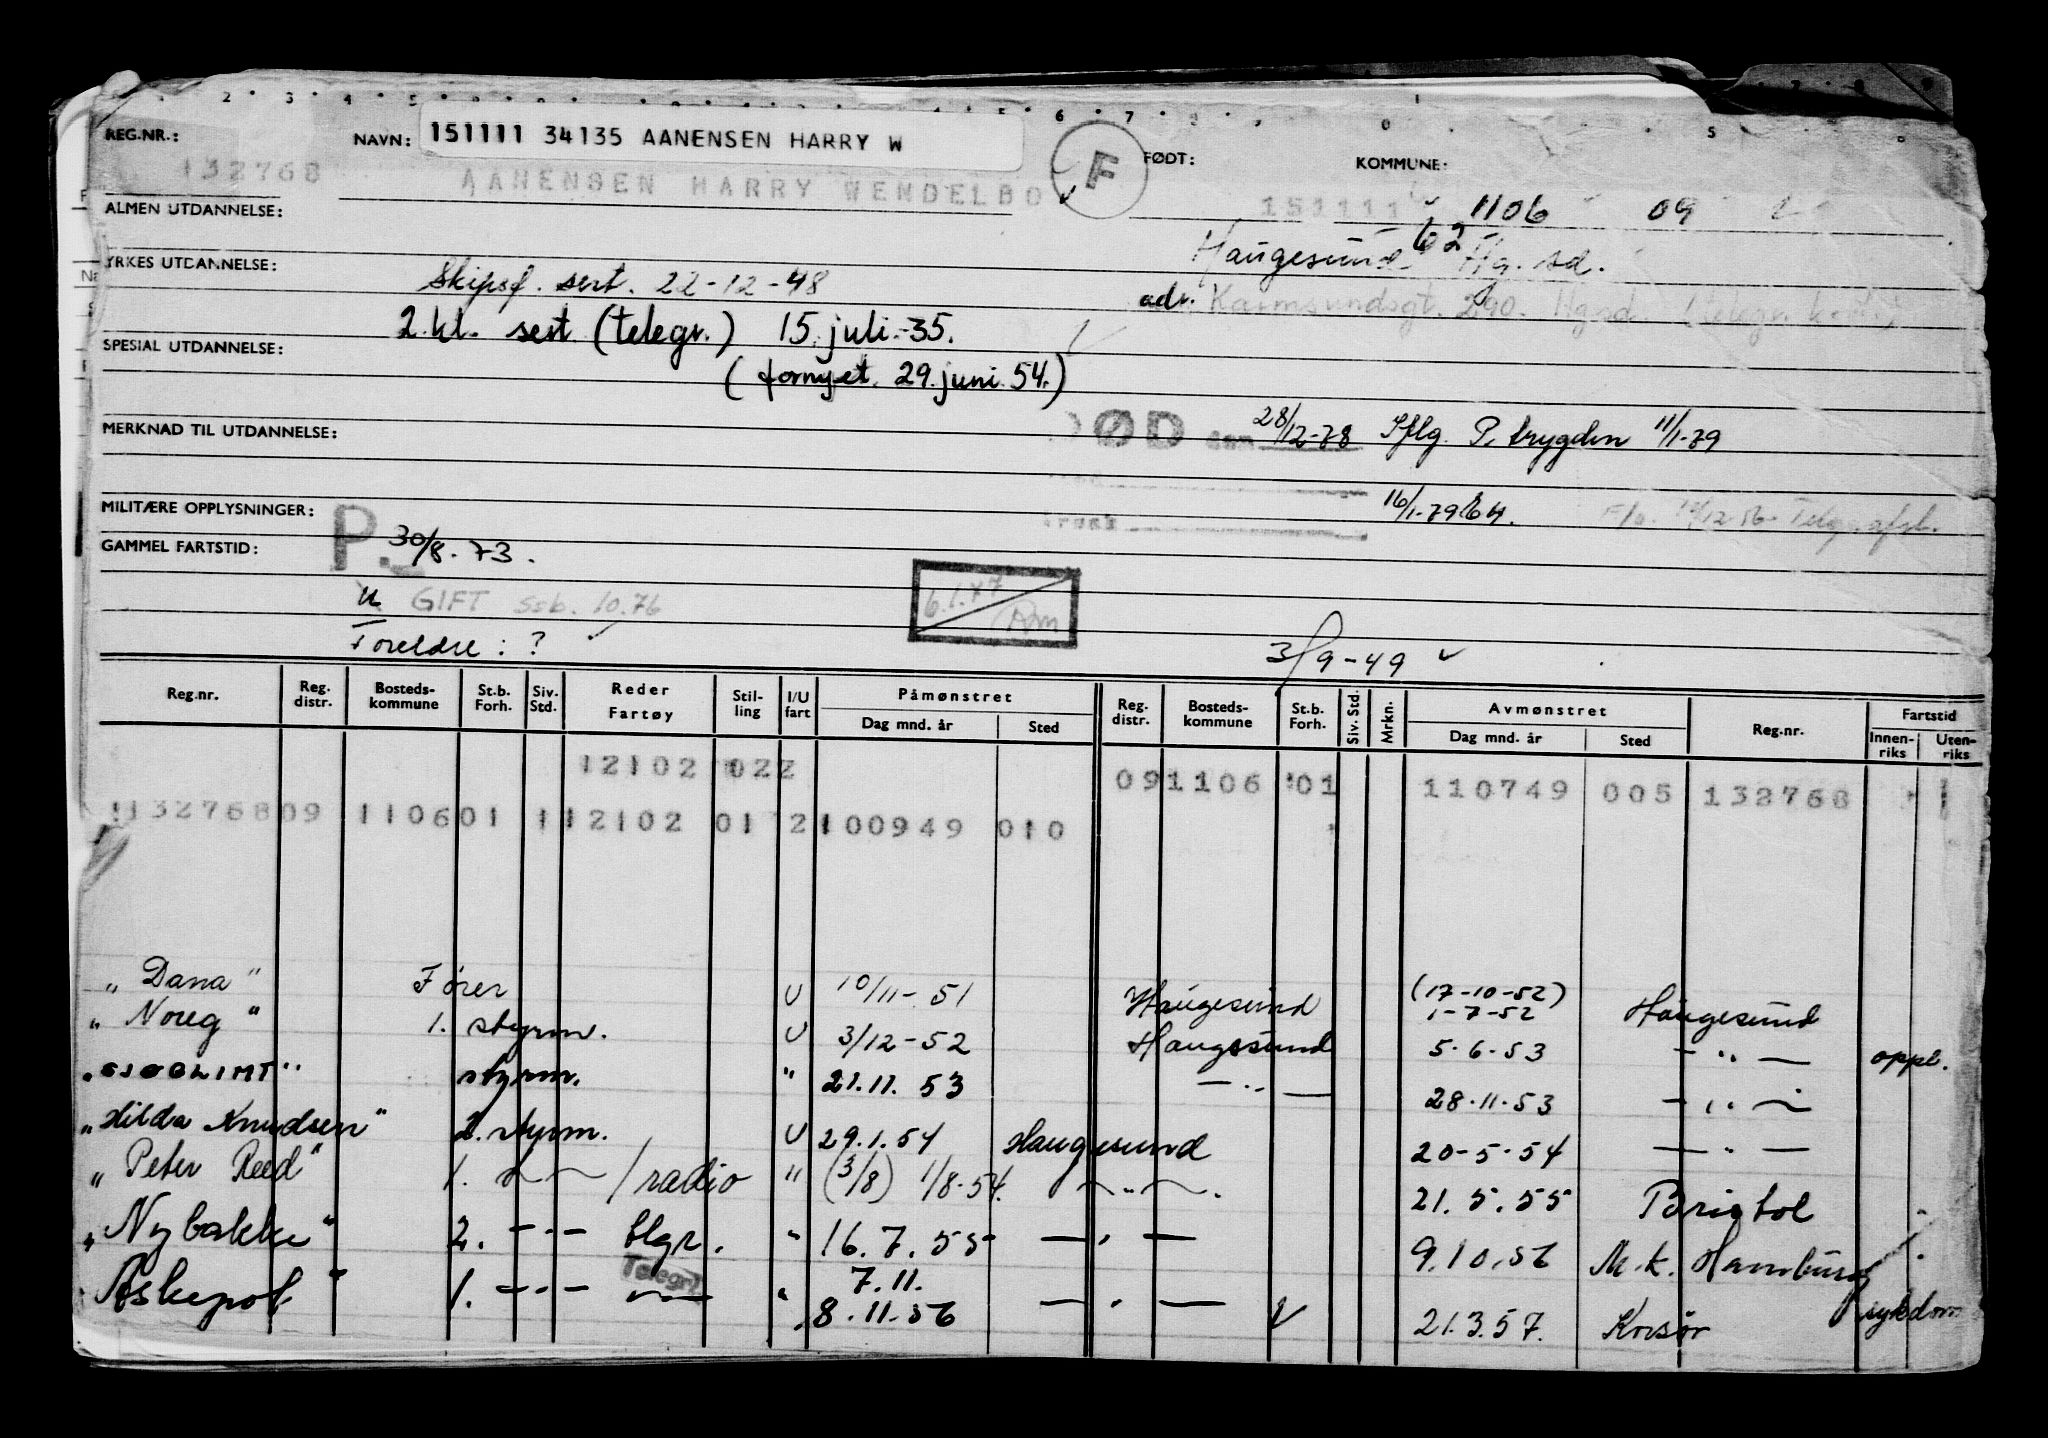 REG.NR.: 132768
NAVN: 151111 34135 AANENSEN HARRY W
AANENSEN HARRY WENDELBO
F
FØDT: 151111
KOMMUNE: 1106 09
62
ALMEN UTDANNELSE:
Haugesund Hg. sd.
YRKES UTDANNELSE: Skipsf. sert. 22-12-48
adr. Karmsundsgt. 290. Hgsd.
2.kl. sert (telegr.) 15. juli.-35.
SPESIAL UTDANNELSE:
(fornyet. 29. juni. 54.)
MERKNAD TIL UTDANNELSE:
DØD den 28/12-78 Iflg. P. trygden 11/1-79
MILITÆRE OPPLYSNINGER:
16/1-79
GAMMEL FARTSTID:
P. 30/8.73.
GIFT ssb. 10.76
6.1.77
Foreldre : ?
3/9-49
Reg.nr. Reg. distr. Bosteds-kommune St.b. Forh. Siv. Std. Reder Fartøy Stil-ling I/U fart Påmønstret Dag mnd. år Sted Reg. distr. Bosteds-kommune St.b. Forh. Siv. Std. Mrkn. Avmønstret Dag mnd. år Sted Reg.nr. Fartstid Innen-riks Uten-riks
12102 022 091106 01 110749 005 132768
13276809 110601 112102 01 2 100949 010
"Dana" Fører U 10/11-51 Haugesund (17-10-52) 1-7-52 Haugesund
"Noreg" 1. styrm. U 3/12-52 Haugesund 5.6.53 - " - oppl.
styrm. " 21.11.53 - " - 28.11.53 - " -
"Hilda Knudsen" 2. styrm. U 29.1.54 Haugesund 20-5-54 - " -
"Peter Reed" 1. - " - / radio " (3/8) 1/8-54. - " - 21.5.55 Bristol
"Nybakke" 2. - " - tlgr. " 16.7.55 - " - 9.10.56 M.k. Hamburg
"Askepot" 1. - " - Telegr. " 7.11. 8.11.56 - " - 21.3.57. Korsør sykdom